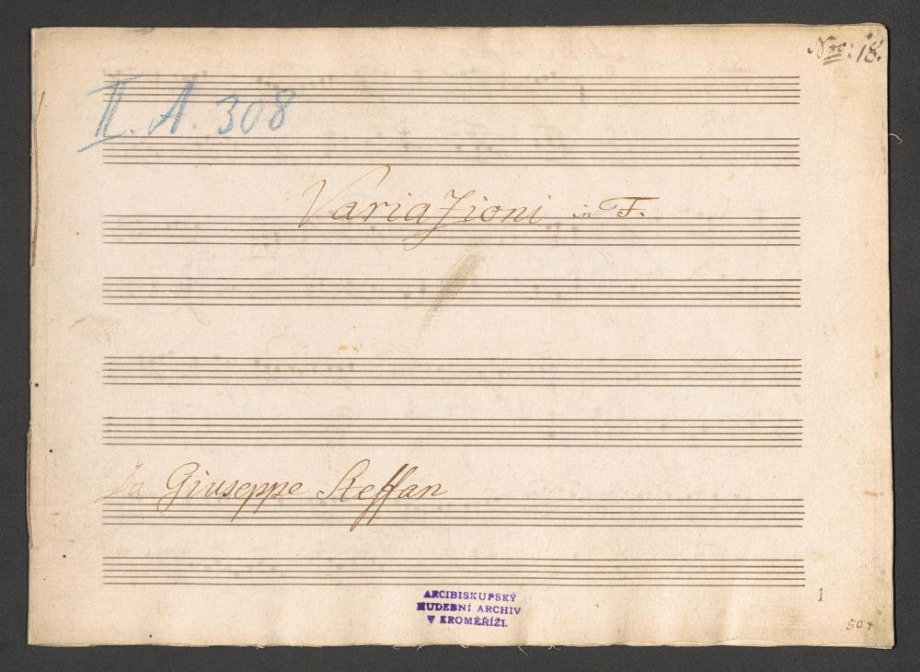 Nro: 18.
II. A. 308
Variazioni in F.
Da Giuseppe Steffan
ARCIBISKUPSKÝ
HUDEBNÍ ARCHIV
V KROMĚŘÍŽI.
1